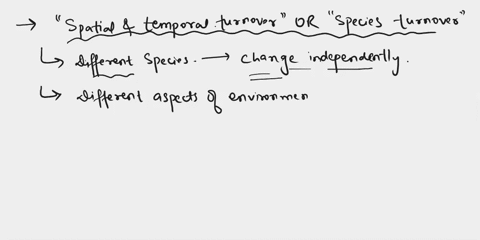 → "Spatial & temporal turnover" OR "Species turnover"
↳ Different Species. → change independently.
↳ Different aspects of environmen